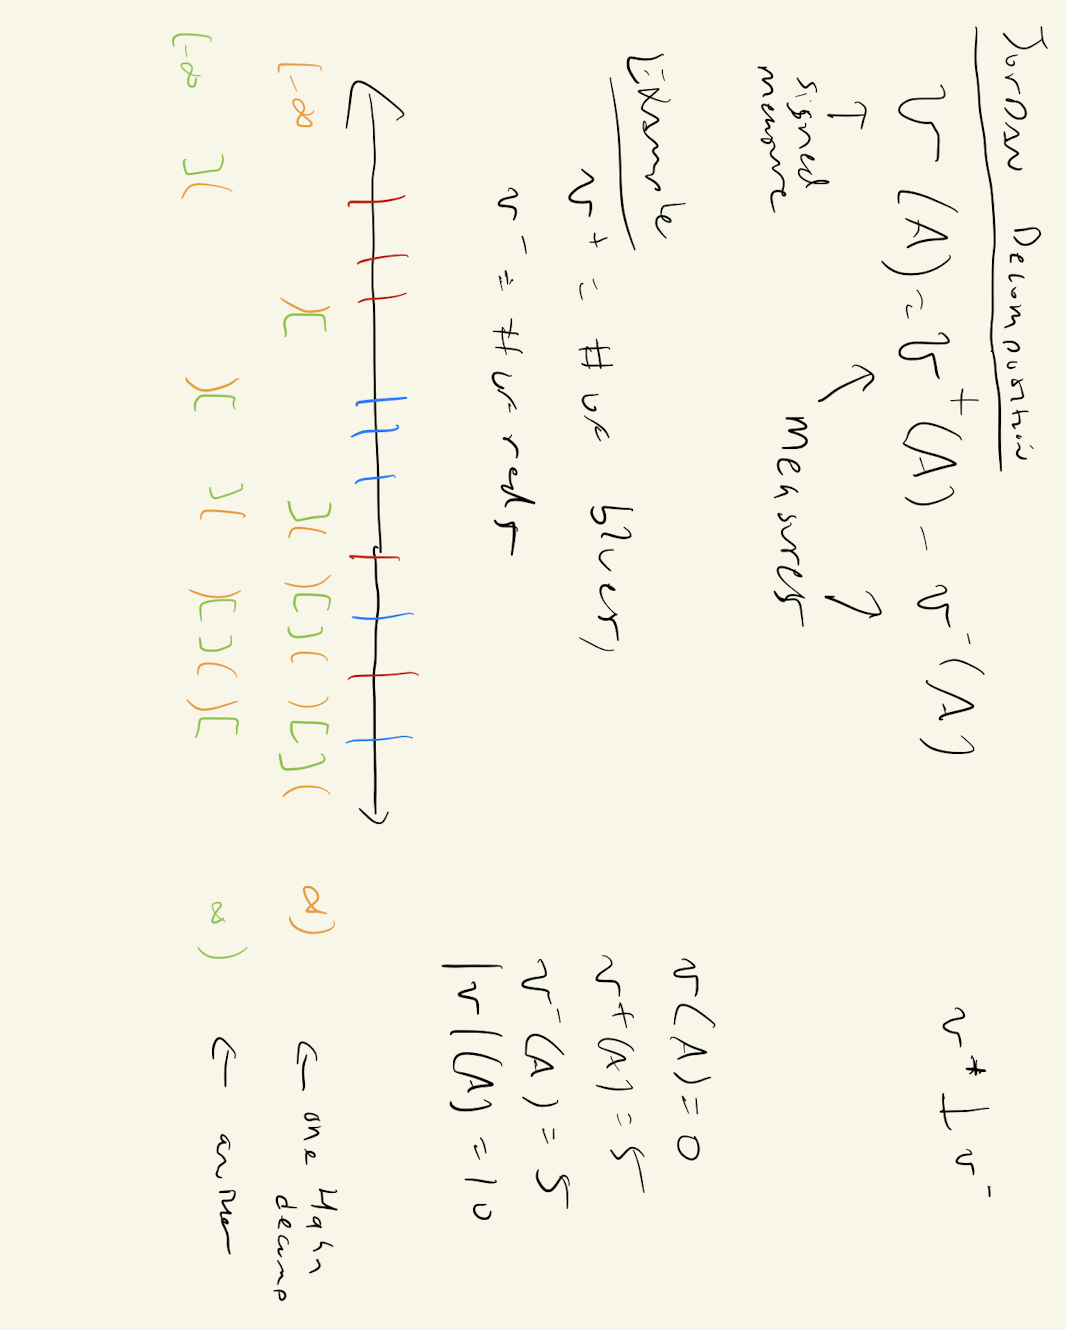 Jordan Decomposition
ν(A) = ν⁺(A) - ν⁻(A)
ν⁺ ⊥ ν⁻
↑
signed
measure
↖ measures ↗
Example
ν⁺ = # of blues,
ν⁻ = # of reds
ν(A) = 0
ν⁺(A) = 5
ν⁻(A) = 5
|ν|(A) = 10
(-∞ )[ ]( )[ ]( )[ ]( ∞) ← one Hahn
decomp
(-∞ ]( )[ ]( )[ ]( )[ ∞) ← another